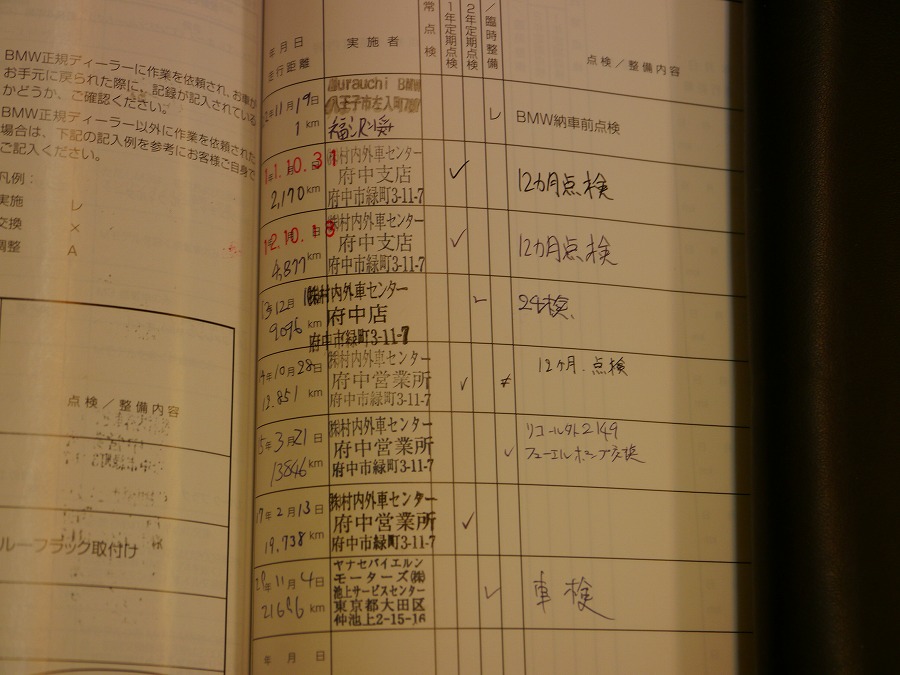 BMW正規ディーラーに作業を依頼され、お車が
お手元に戻られた際に、記録が記入されている
かどうか、ご確認ください。
BMW正規ディーラー以外に作業を依頼された
場合は、下記の記入例を参考にお客様ご自身で
ご記入ください。
凡例:
実施 レ
交換 ×
調整 A
点検/整備内容
ルーフラック取付け
年月日
走行距離
実施者
常点検
1年定期点検
2年定期点検
/臨時整備
点検/整備内容
年11月19日
1 km
Murauchi BMW
八王子市左入町
レ
BMW納車前点検
11.10.31
2,170 km
㈱村内外車センター
府中支店
府中市緑町3-11-7
✓
12カ月点検
12.10.13
4,877 km
㈱村内外車センター
府中支店
府中市緑町3-11-7
✓
12カ月点検
13年12月
9096 km
㈱村内外車センター
府中店
府中市緑町3-11-7
✓
14年10月28日
12.851 km
㈱村内外車センター
府中営業所
府中市緑町3-11-7
✓
12ヶ月.点検
15年3月21日
13846 km
㈱村内外車センター
府中営業所
府中市緑町3-11-7
✓
2149
フューエルポンプ交換
17年2月13日
19,738 km
㈱村内外車センター
府中営業所
府中市緑町3-11-7
✓
年11月4日
21696 km
ヤナセバイエルン
モーターズ㈱
池上サービスセンター
東京都大田区
仲池上2-15-16
レ
車検
年 月 日